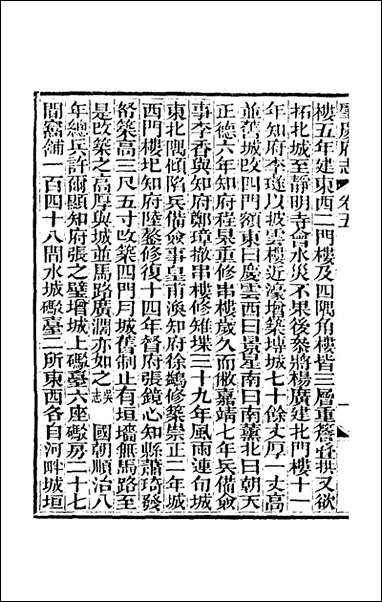 肇慶府志 卷五 一
樓五年建東西二門樓及四隅角樓皆三層重簷疊拱又欲
拓北城至靜明寺會水災不果後參將楊廣建北門樓十一
年知府李璲以披雲樓近濠增築埤城七十餘丈厚一丈高
並舊城改四門額東曰慶雲西曰景星南曰南薰北曰朝天
正德六年知府程杲重修串樓歲久而敝嘉靖七年兵備僉
事李香與知府鄭璋撤串樓修雉堞三十九年風雨連旬城
東北隅傾陷兵備僉事皇甫渙知府徐鷗修築崇正二年城
西門樓圮知府陸鏊修復十四年督府張鏡心知縣蕭琦發
帑築高三尺五寸改築四門月城舊制止有垣墻無馬路至
是改築之高厚與城並馬路廣濶亦如之吳志 國朝順治八
年總兵許爾顯知府張之璧增城上礮臺六座礮房二十七
間窩舖一百四十八間水城礮臺二所東西各自河畔城垣